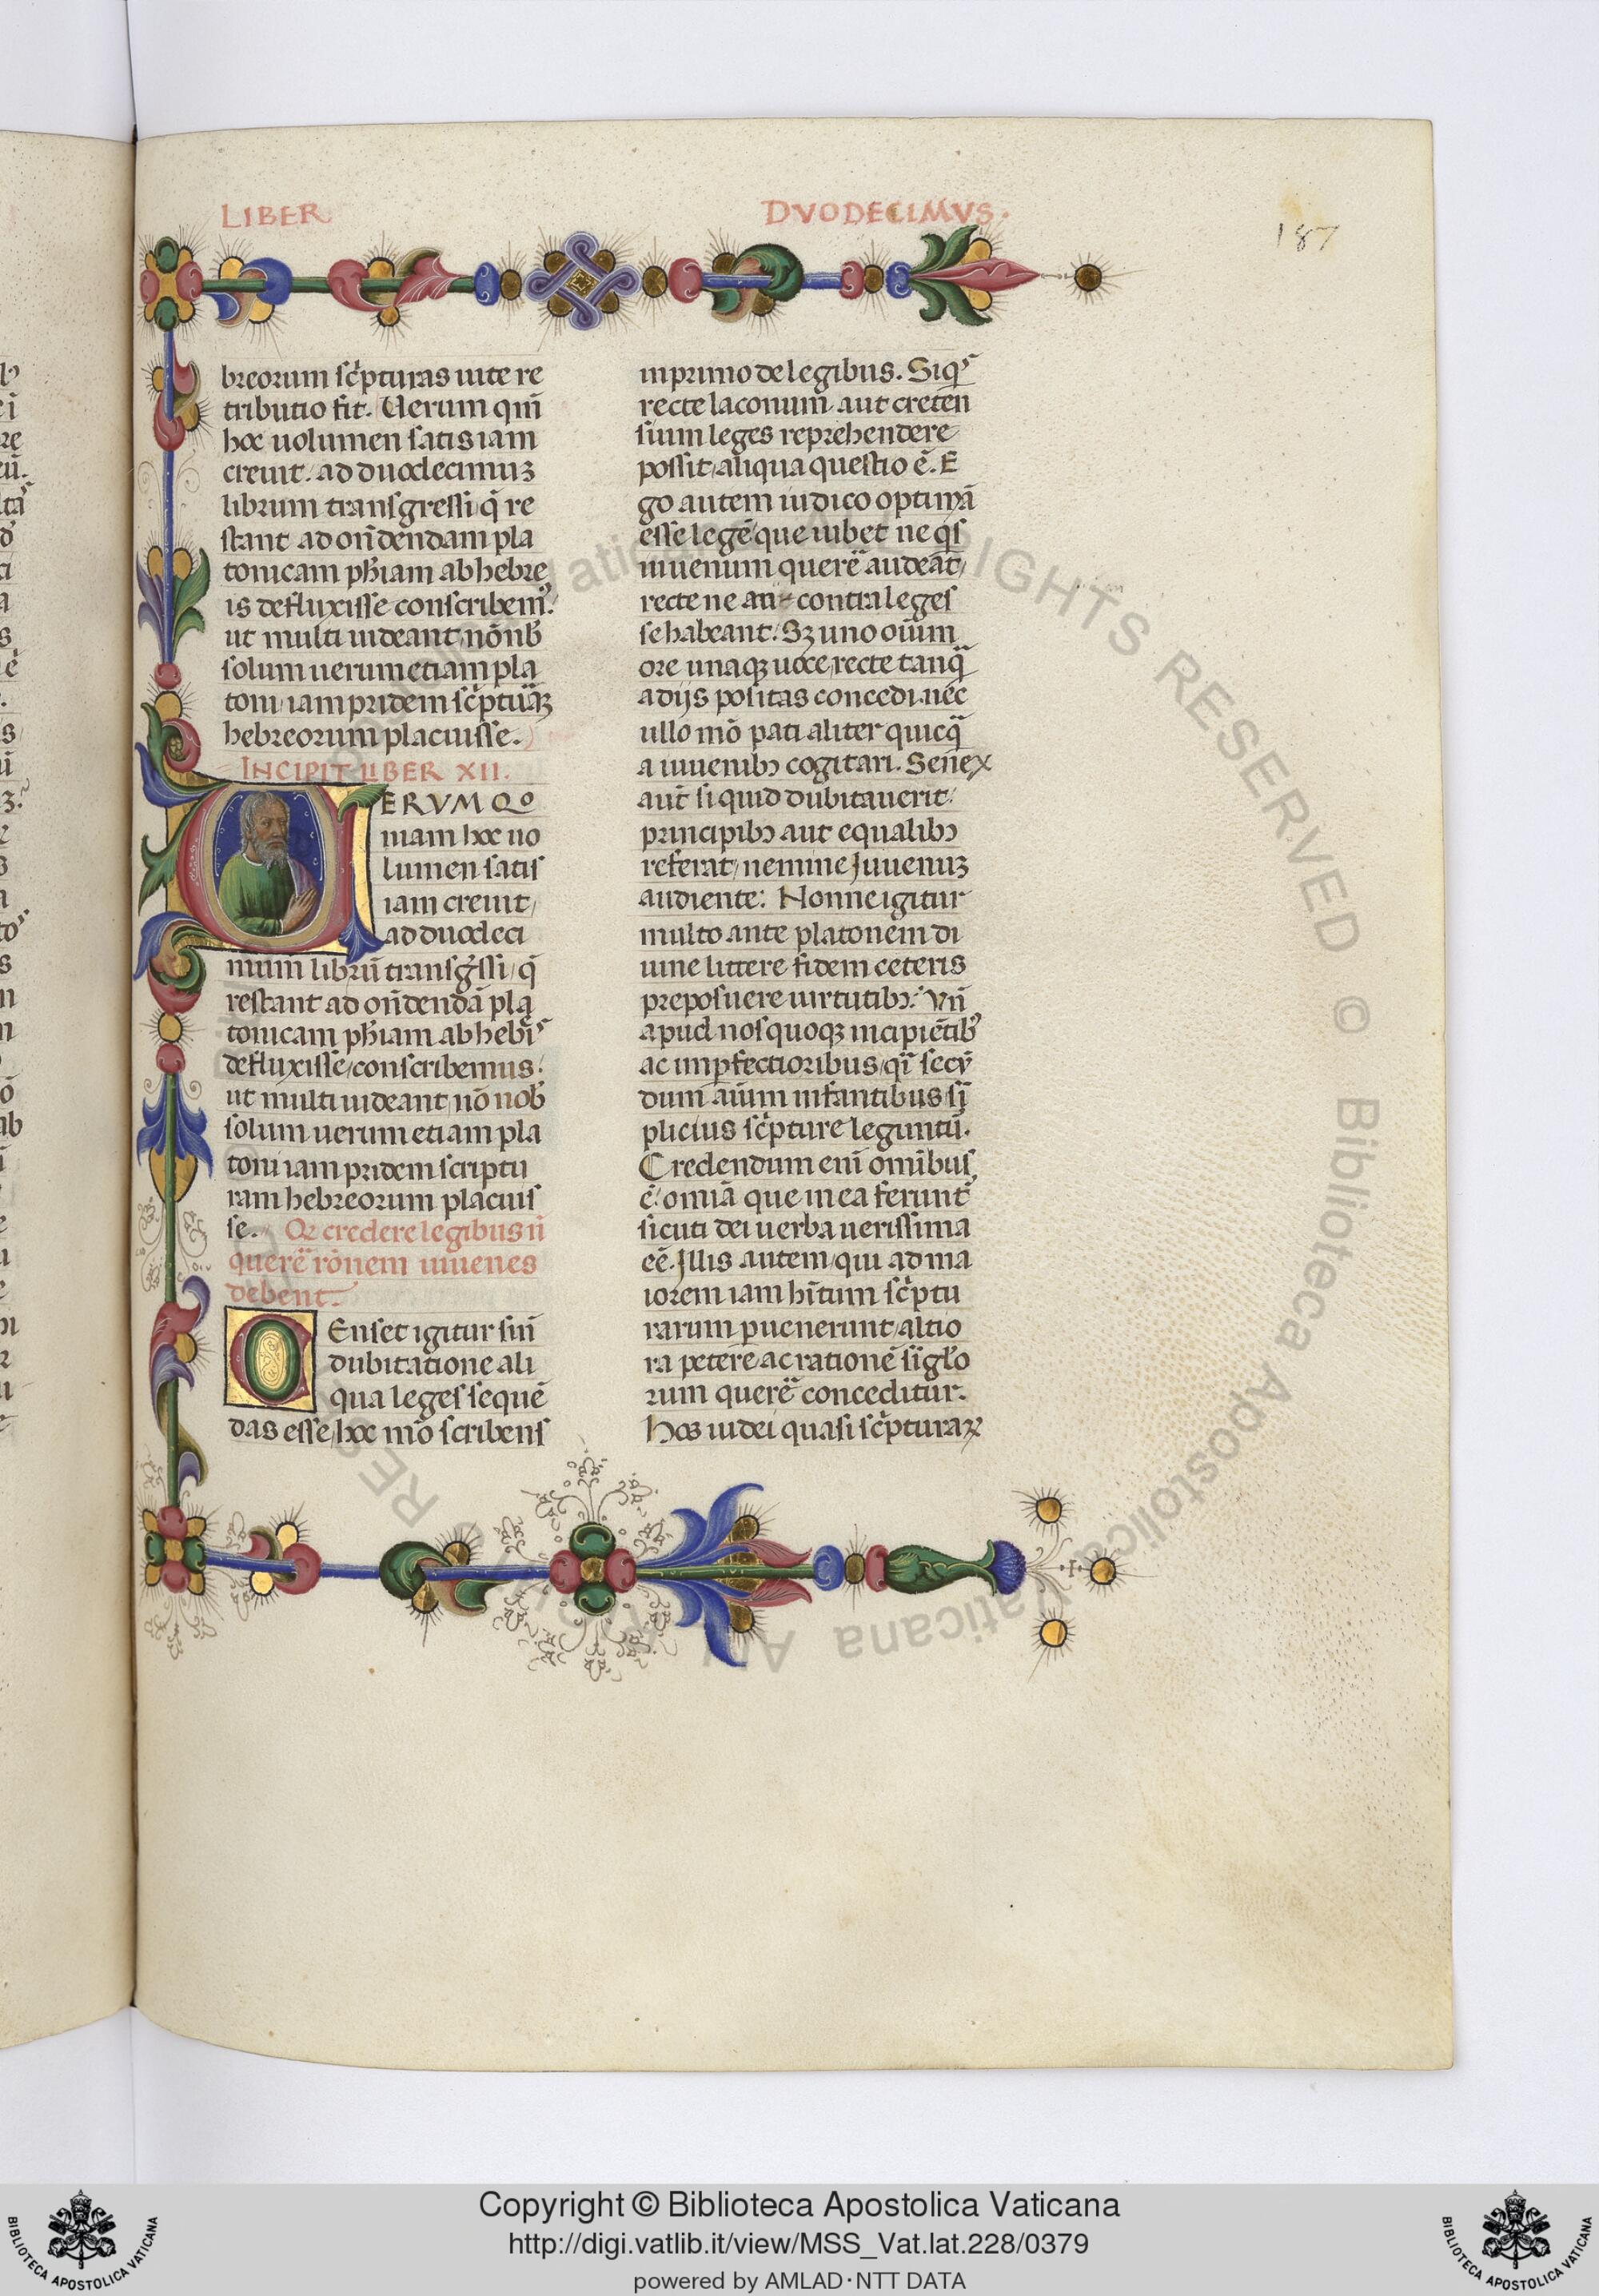 LIBER DVODECIMVS.
187
breorum sc̃pturas uite re
tributio fit. Uerum qm̃
hoc uolumen satis iam
creuit: ad duodecimuꝫ
librum transgressi, q̃ re
stant ad on̄dendam pla
tonicam ph̃iam ab hebre
is defluxisse conscribem᾿:
ut multi uideant, nō nob̄
solum uerum etiam pla
toni iam pridem sc̃ptur̃aꝫ
hebreorum placuisse.
INCIPIT LIBER XII.
UERVM QO
niam hoc uo
lumen satis
iam creuit,
ad duodeci
mum librū transg̃ssi, q̃
restant ad on̄dendā pla
tonicam ph̃iam ab hebr̃
defluxisse, conscribemus:
ut multi uideant, nō nob̄
solum uerum etiam pla
toni iam pridem scriptu
ram hebreorum placuis
se. Qꝫ credere legibus n̄
querer̃ rōnem iuuenes
debent.
Censet igitur sin̄
dubitatione ali
qua leges sequē
das esse, hoc mō scribens
in primo de legibus. Siqs̃
recte laconum, aut creten̄
sium leges reprehendere
possit, aliqua questio ē. E
go autem iudico optimā
esse legē, que iubet ne qs̃
iuuenum querer̃ audeat,
recte ne an contra leges
se habeant: Sꝫ uno oīum
ore unaqꝫ uoce, recte tanq̃
a dijs positas concedi, nec
ullo mō pati aliter quicq̃
a iuuenibꝫ cogitari. Senex
aut̄ si quid dubitauerit:
principibꝫ aut equalibꝫ
referat, nemine Juuenuꝫ
audiente: Nonne igitur
multo ante platonem di
uine littere fidem ceteris
preposuere uirtutibꝫ: Vn̄
apud nos quoqꝫ incipiētibꝫ
ac imp̱fectioribus, qͥ secū
dum aīum infantibus sī
plicius sc̃pture leguntū.
Credendum enī omībus
ē: omīa que in ea ferunt̄
sicuti dei uerba uerissima
eē. Jllis autem, qui ad ma
iorem iam hītum sc̃ptu
rarum puenerunt, altio
ra petere, ac rationē sīgl̃o
rum querer̃ conceditur.
Hos iudei quasi sc̃pturaꝝ
Copyright © Biblioteca Apostolica Vaticana
http://digi.vatlib.it/view/MSS_Vat.lat.228/0379
powered by AMLAD·NTT DATA
BIBLIOTECA APOSTOLICA VATICANA
BIBLIOTECA APOSTOLICA VATICANA